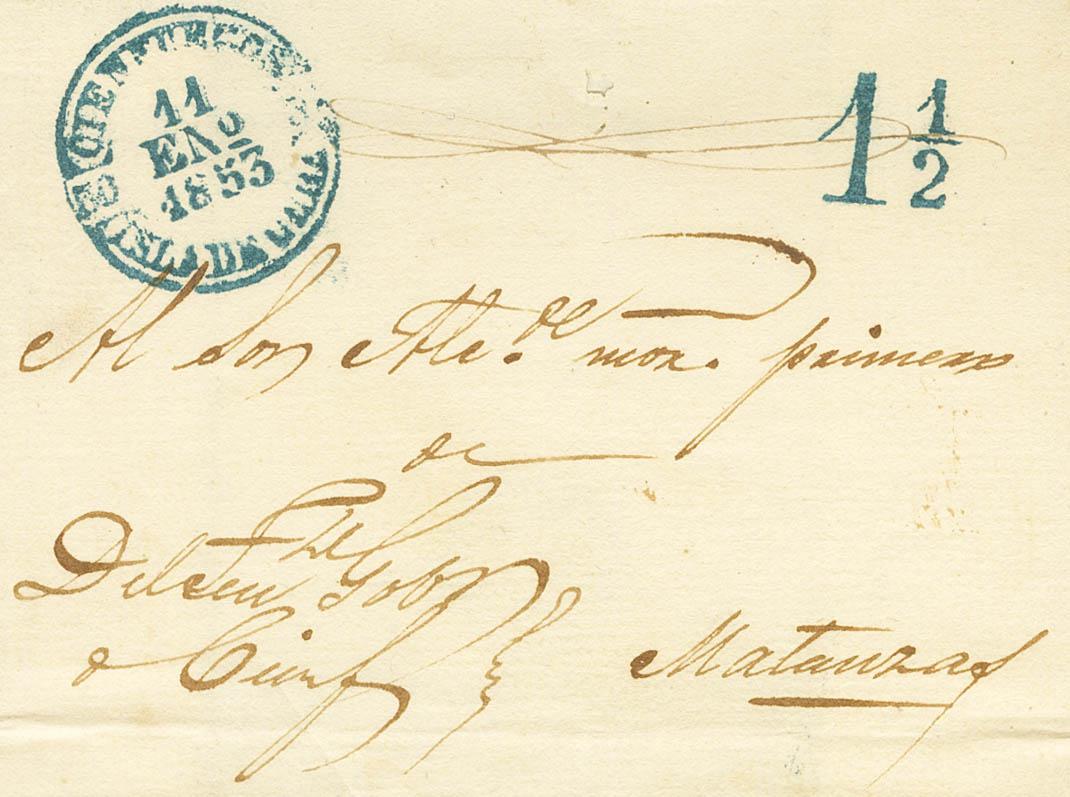 CIENFUEGOS
11
ENº
1853
ISLA DE CUBA
1 1/2
Al Sor Alc.de mor. primero
de
Del Ten.te Gobr
Cienf
Matanzas